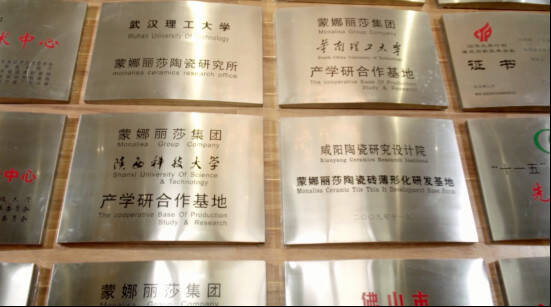 武汉理工大学
Wuhan University Of Technology
蒙娜丽莎陶瓷研究所
monalisa ceramics research office
蒙娜丽莎集团
Monalisa Group Company
华南理工大学
South China University Of Technology
产学研合作基地
The cooperative Base Of Production
Study & Research
证书
术中心
蒙娜丽莎集团
Monalisa Group Company
陕西科技大学
Shanxi University Of Science
& Technology
产学研合作基地
The cooperative Base Of Production
Study & Research
咸阳陶瓷研究设计院
Xianyang Ceramics Research Institute
蒙娜丽莎陶瓷砖薄形化研发基地
Monalisa Ceramic Tile Thin It Development Base
中心
"一一五"
先
蒙娜丽莎集团
Monalisa Group Company
佛山市